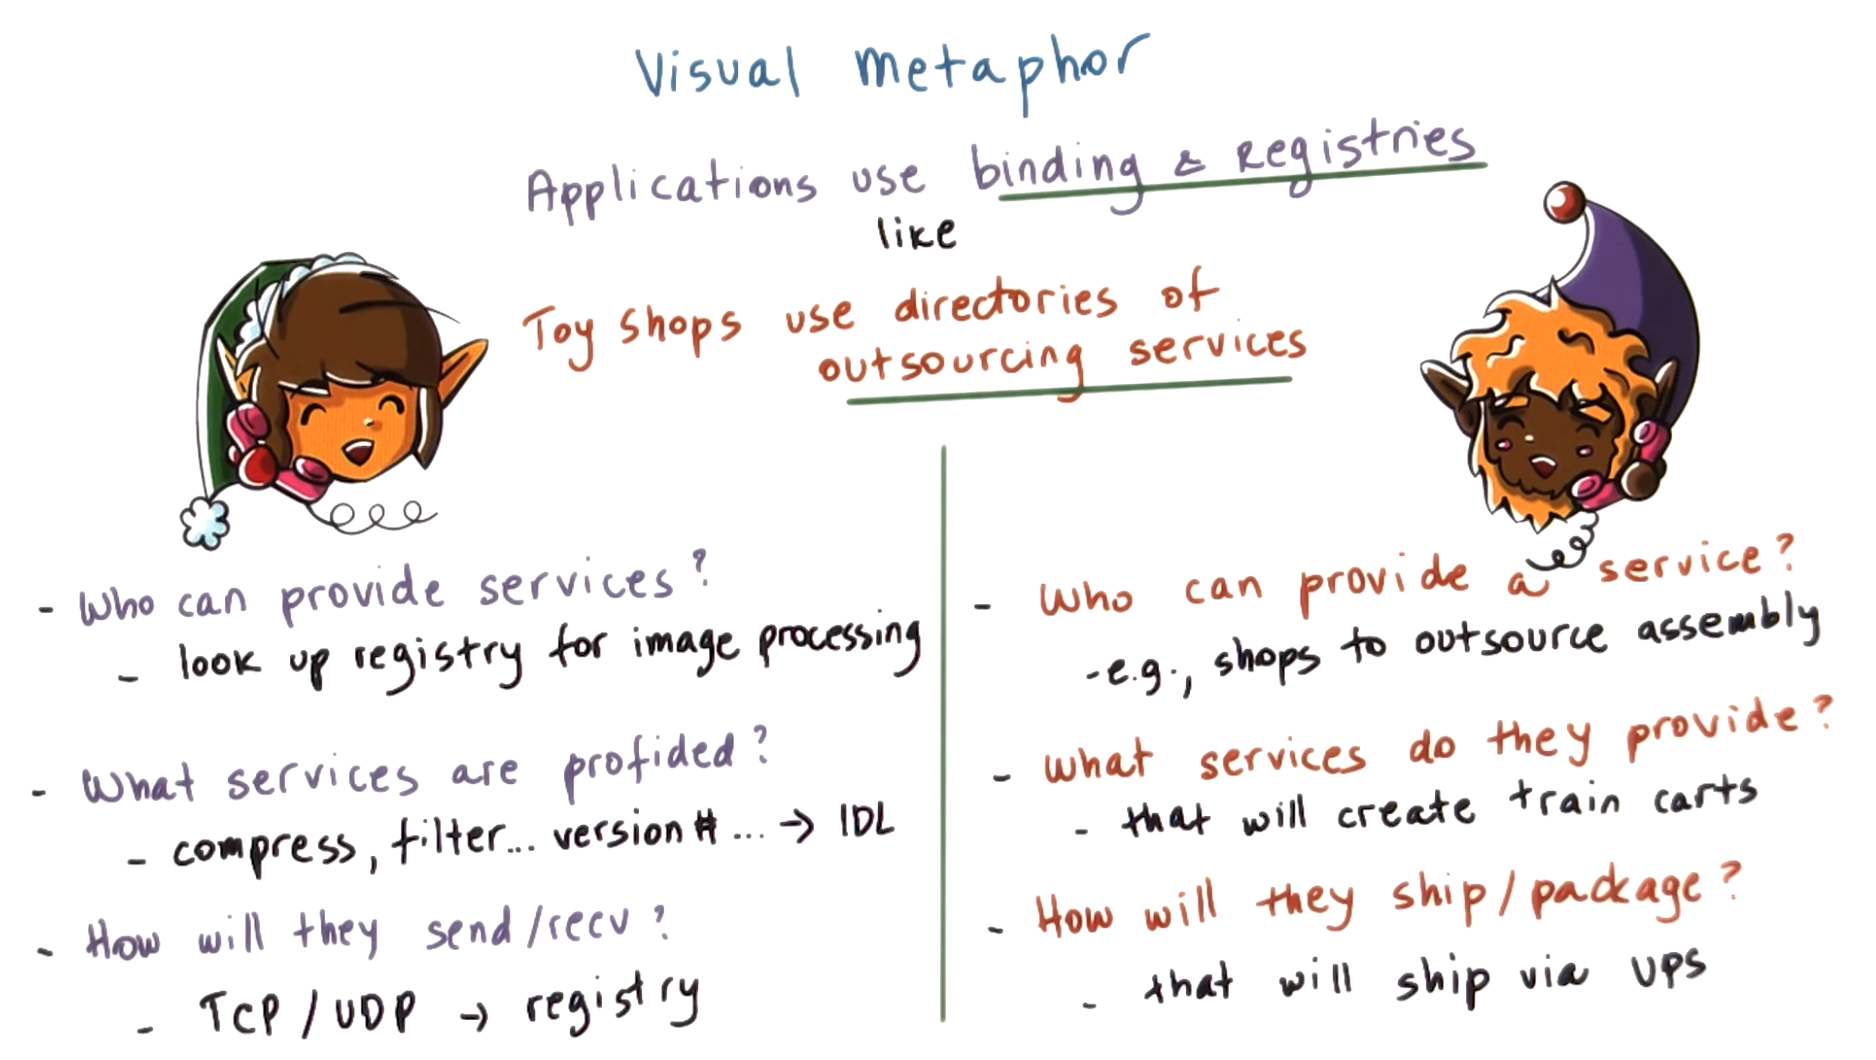 Visual Metaphor
Applications use binding & Registries
like
Toy shops use directories of
outsourcing services
- Who can provide services?
- look up registry for image processing
- What services are profided?
- compress, filter... version # ... → IDL
- How will they send/recv?
- TCP / UDP → registry
- Who can provide a service?
- e.g., shops to outsource assembly
- What services do they provide?
- that will create train carts
- How will they ship/package?
- that will ship via UPS